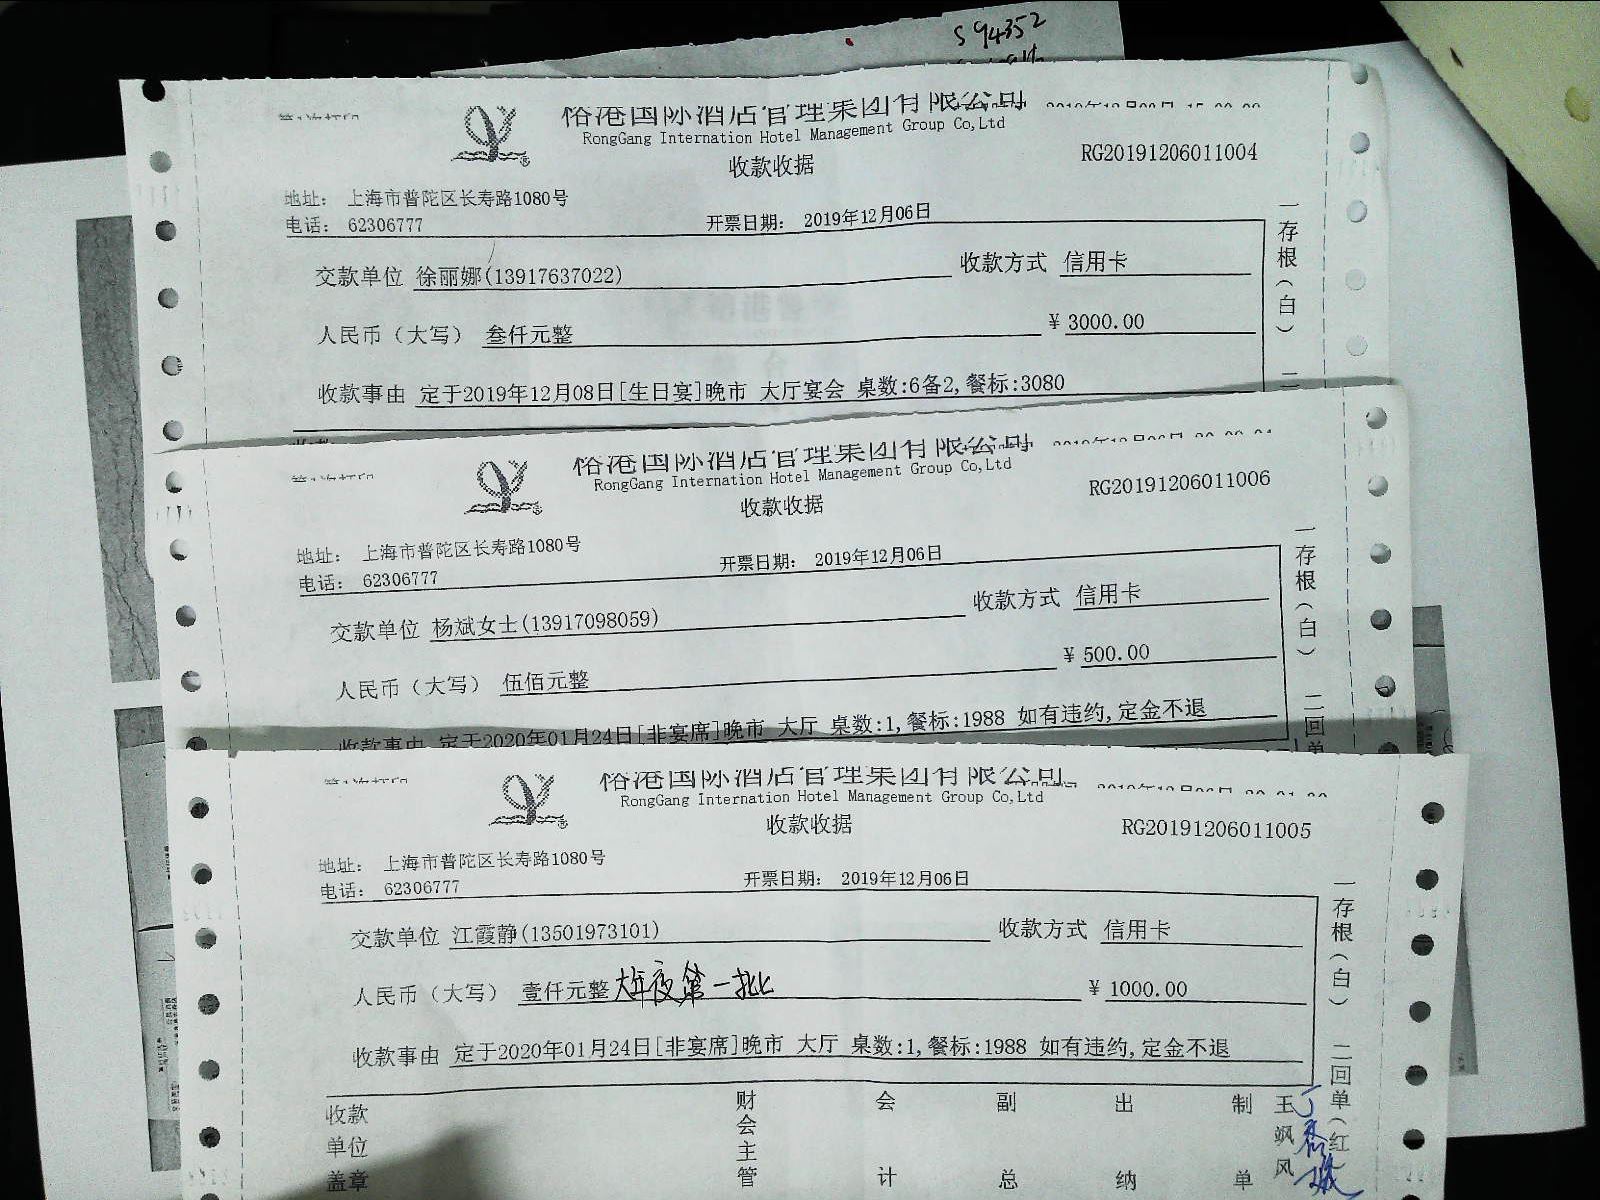 S94352
国际酒店管理集团有限公司
RongGang Internation Hotel Management Group Co,Ltd
收款收据
RG20191206011004
地址： 上海市普陀区长寿路1080号
电话： 62306777
开票日期： 2019年12月06日
交款单位 徐丽娜(13917637022)
收款方式 信用卡
人民币（大写） 叁仟元整
¥ 3000.00
收款事由 定于2019年12月08日[生日宴]晚市 大厅宴会 桌数:6备2,餐标:3080
一存根（白） 二
国际酒店管理集团有限公司
RongGang Internation Hotel Management Group Co,Ltd
收款收据
RG20191206011006
地址： 上海市普陀区长寿路1080号
电话： 62306777
开票日期： 2019年12月06日
交款单位 杨斌女士(13917098059)
收款方式 信用卡
人民币（大写） 伍佰元整
¥ 500.00
收款事由 定于2020年01月24日[非宴席]晚市 大厅 桌数:1,餐标:1988 如有违约,定金不退
一存根（白） 二回单
国际酒店管理集团有限公司
RongGang Internation Hotel Management Group Co,Ltd
收款收据
RG20191206011005
地址： 上海市普陀区长寿路1080号
电话： 62306777
开票日期： 2019年12月06日
交款单位 江霞静(13501973101)
收款方式 信用卡
人民币（大写） 壹仟元整 大年夜第一批
¥ 1000.00
收款事由 定于2020年01月24日[非宴席]晚市 大厅 桌数:1,餐标:1988 如有违约,定金不退
一存根（白） 二回单（红）
收款单位盖章
财会主管
会计
副总
出纳
制单
王飒风